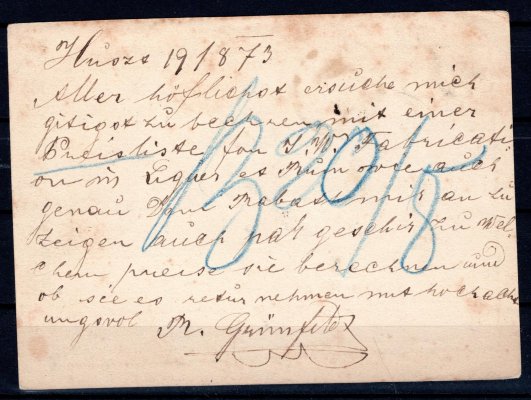 Huszt 19/8 73
Aller höflichst ersuche mich
gitigst zu beehren mit einer
Preisliste fon I. W. Fabricati
on in Liguer et Rum wie auch
genau Dem Rabast mir an zu
zeigen auch pak geschir zu wel
chem preise sie berechnen und
ob sie es retur nehmen mit hochacht
ungsvol R. Grünfeld
B 20/8